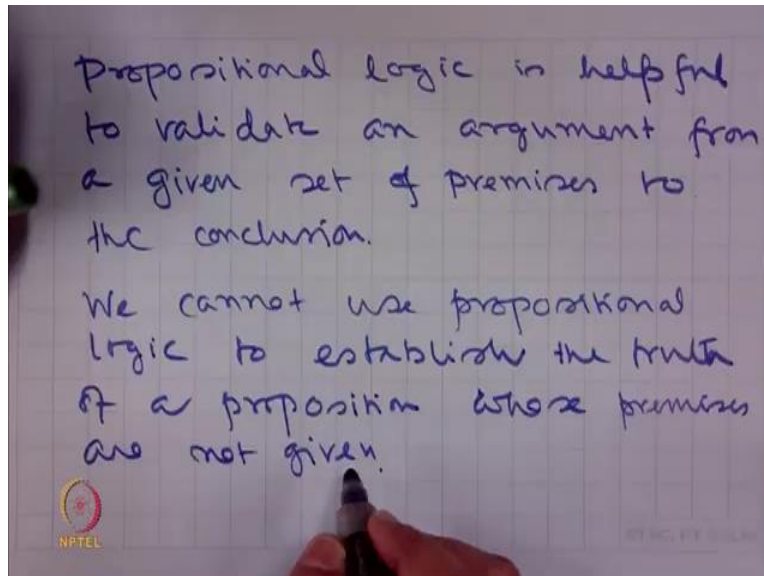 Propositional logic is helpful
to validate an argument from
a given set of premises to
the conclusion.
We cannot use propositional
logic to establish the truth
of a proposition whose premises
are not given.
NPTEL